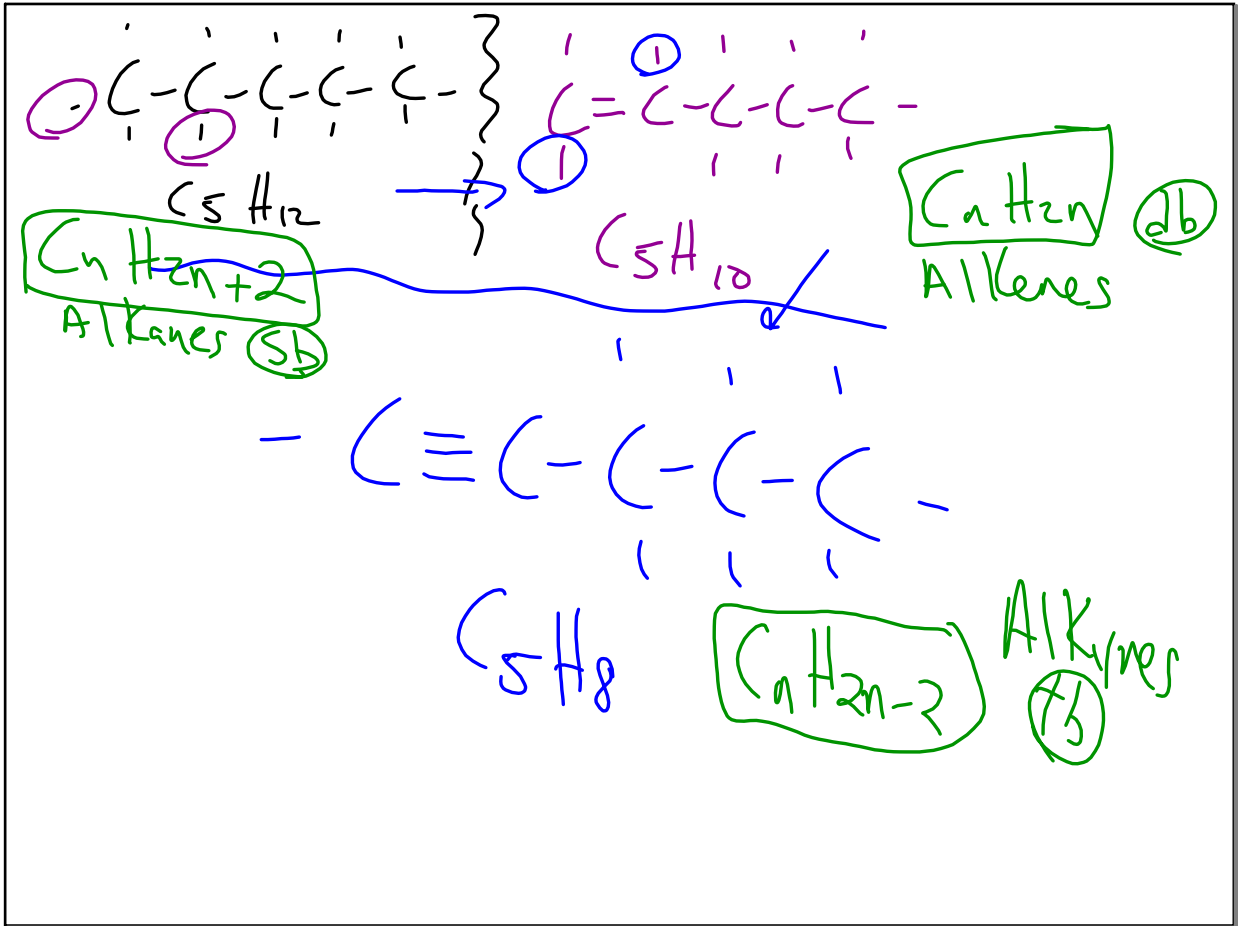 C - C - C - C - C -
C5H12
CnH2n+2
Alkanes sb
C = C - C - C - C -
C5H10
CnH2n db
Alkenes
- C ≡ C - C - C - C -
C5H8
CnH2n-2
Alkynes
tb